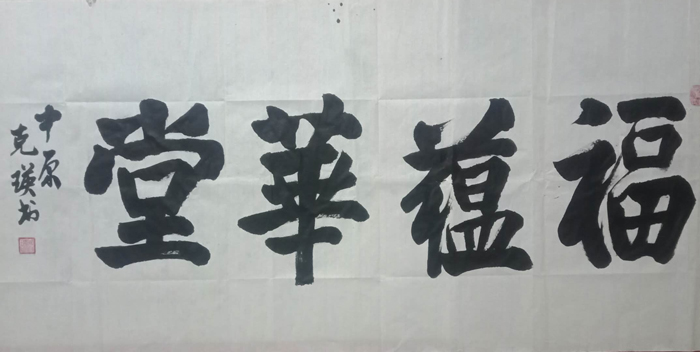 福蕴華堂
中原
克瑛书